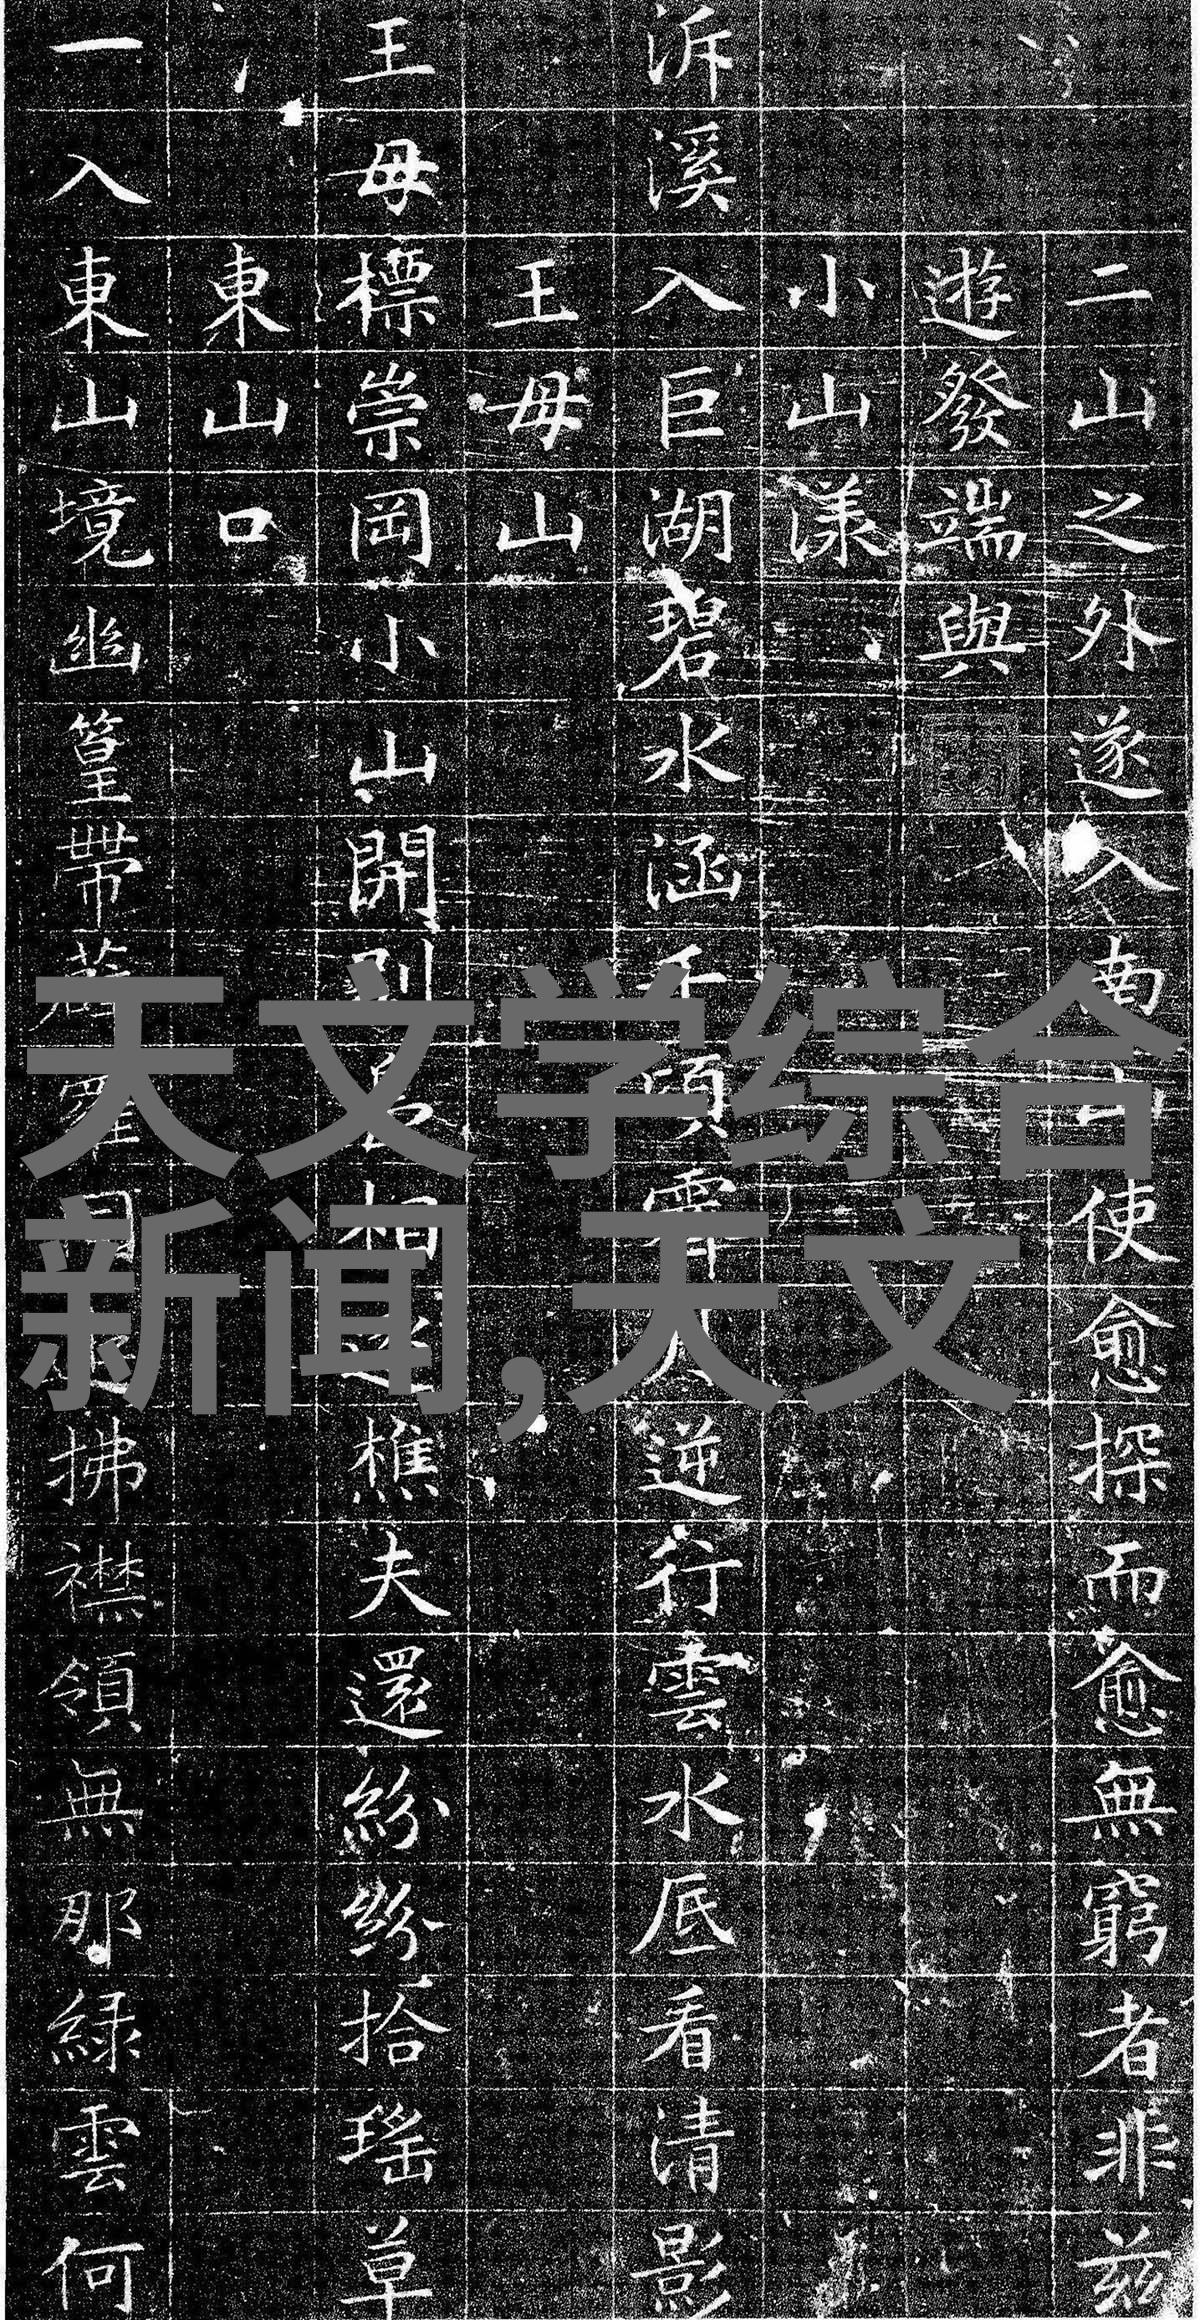 二山之外遂入南山使愈探而愈無窮者非茲
遊發端與
小山漾
泝溪入巨湖碧水涵千頃人逆行雲水底看清影
王母山
王母標崇岡小山開別相樵夫還紛紛拾瑤草
東山口
一入東山境幽篁帶薜蘿拂襟領無那綠雲何
天文学综合
新闻,天文